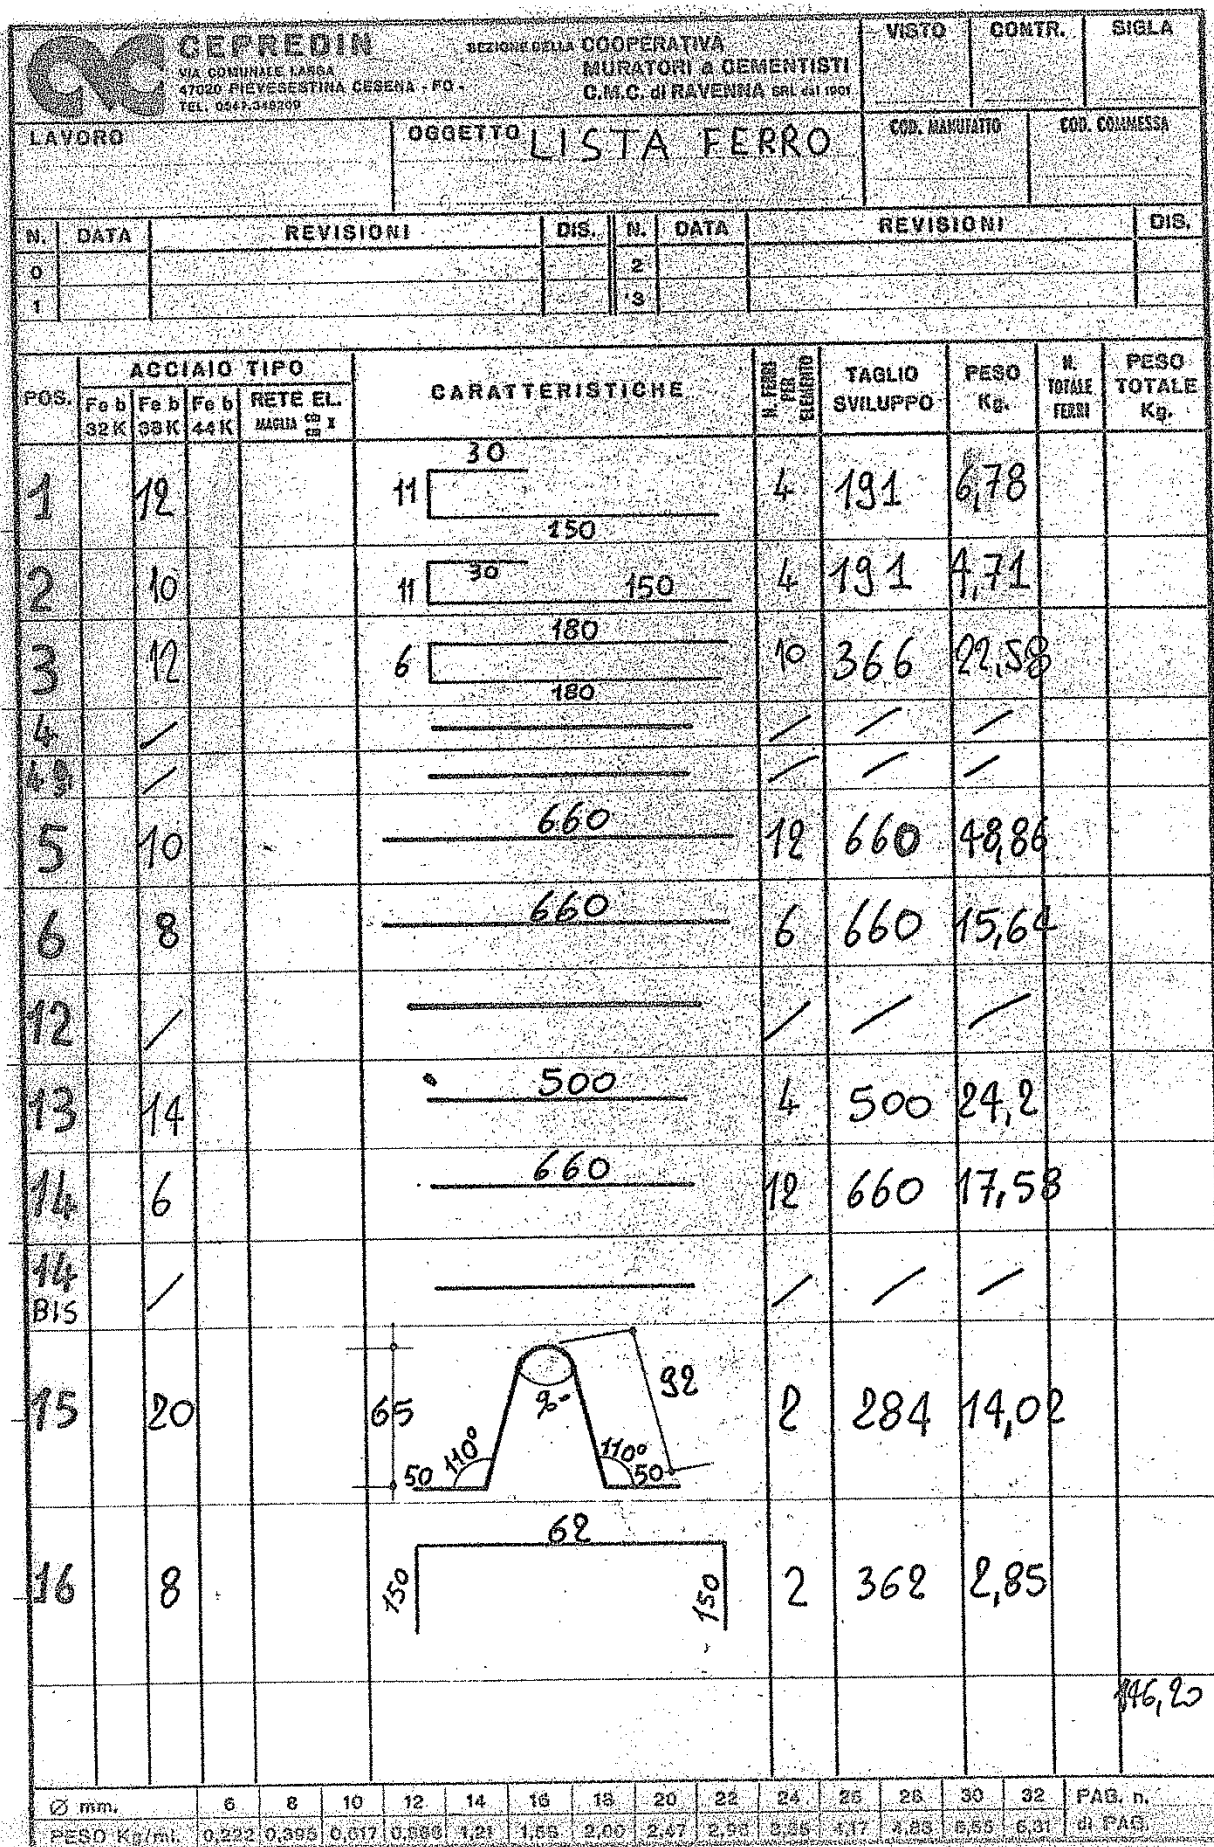 CEPREDIN
VIA COMUNALE LARGA
47020 PIEVESESTINA CESENA - FO -
TEL. 0547.348209
SEZIONE DELLA COOPERATIVA
MURATORI & CEMENTISTI
C.M.C. di RAVENNA SRL dal 1901
VISTO CONTR. SIGLA
LAVORO
OGGETTO LISTA FERRO
COD. MANUFATTO COD. COMMESSA
N. DATA REVISIONI DIS. N. DATA REVISIONI DIS.
0 2
1 3
POS. ACCIAIO TIPO CARATTERISTICHE N. FERRI PER ELEMENTO TAGLIO SVILUPPO PESO Kg. N. TOTALE FERRI PESO TOTALE Kg.
Fe b 32K Fe b 38K Fe b 44K RETE EL. MAGLIA cm x cm
1 12 30 11 150 4 191 6,78
2 10 30 11 150 4 191 4,71
3 12 180 6 180 10 366 22,58
4 / / / /
4 / / / /
5 10 660 12 660 48,86
6 8 660 6 660 15,64
12 / / / /
13 14 500 4 500 24,2
14 6 660 12 660 17,58
14 BIS / / / /
15 20 65 92 50 110° 110° 50 2 284 14,02
16 8 62 150 150 2 362 2,85
146,20
Ø mm. 6 8 10 12 14 16 18 20 22 24 26 28 30 32 PAG. n.
PESO Kg/ml. 0,222 0,395 0,617 0,888 1,21 1,58 2,00 2,47 2,98 3,55 4,17 4,83 5,55 6,31 di PAG.